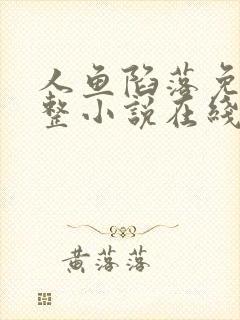 人鱼陷落免
整小说在线
黄落落